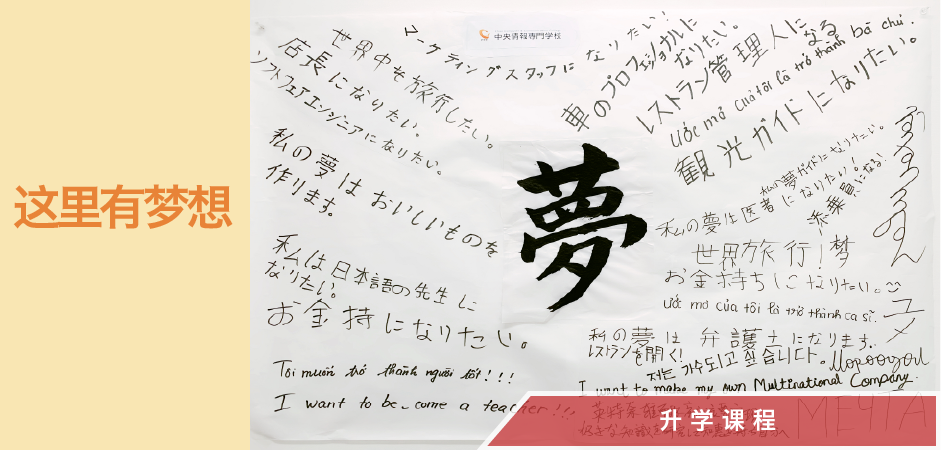 这里有梦想
中央情報専門学校
マーケティングスタッフになりたい!
世界中を旅行したい。
店長になりたい。
ソフトフェアエンジニアになりたい。
私の夢はおいしいものを
作ります。
私は日本語の先生に
なりたい。
お金持になりたい。
Tôi muốn trở thành người tốt!!!
I want to be come a teacher!!!
夢
車のプロフェッショナルに
なりたい。
レストラン管理人になる
ước mơ của tôi là trở thành bà chủ.
観光ガイドになりたい。
私の夢ガイドになりたい。
私の夢は医者になりたい!
添乗員になる!
世界旅行!梦
お金持ちになりたい。
ước mơ của tôi là trở thành ca sĩ.
ユメ
私の夢は弁護士になります。
レストランを開く!
저는 가수되고 싶습니다.
I want to make my own Multinational Company.
МЕЧТА
升学课程